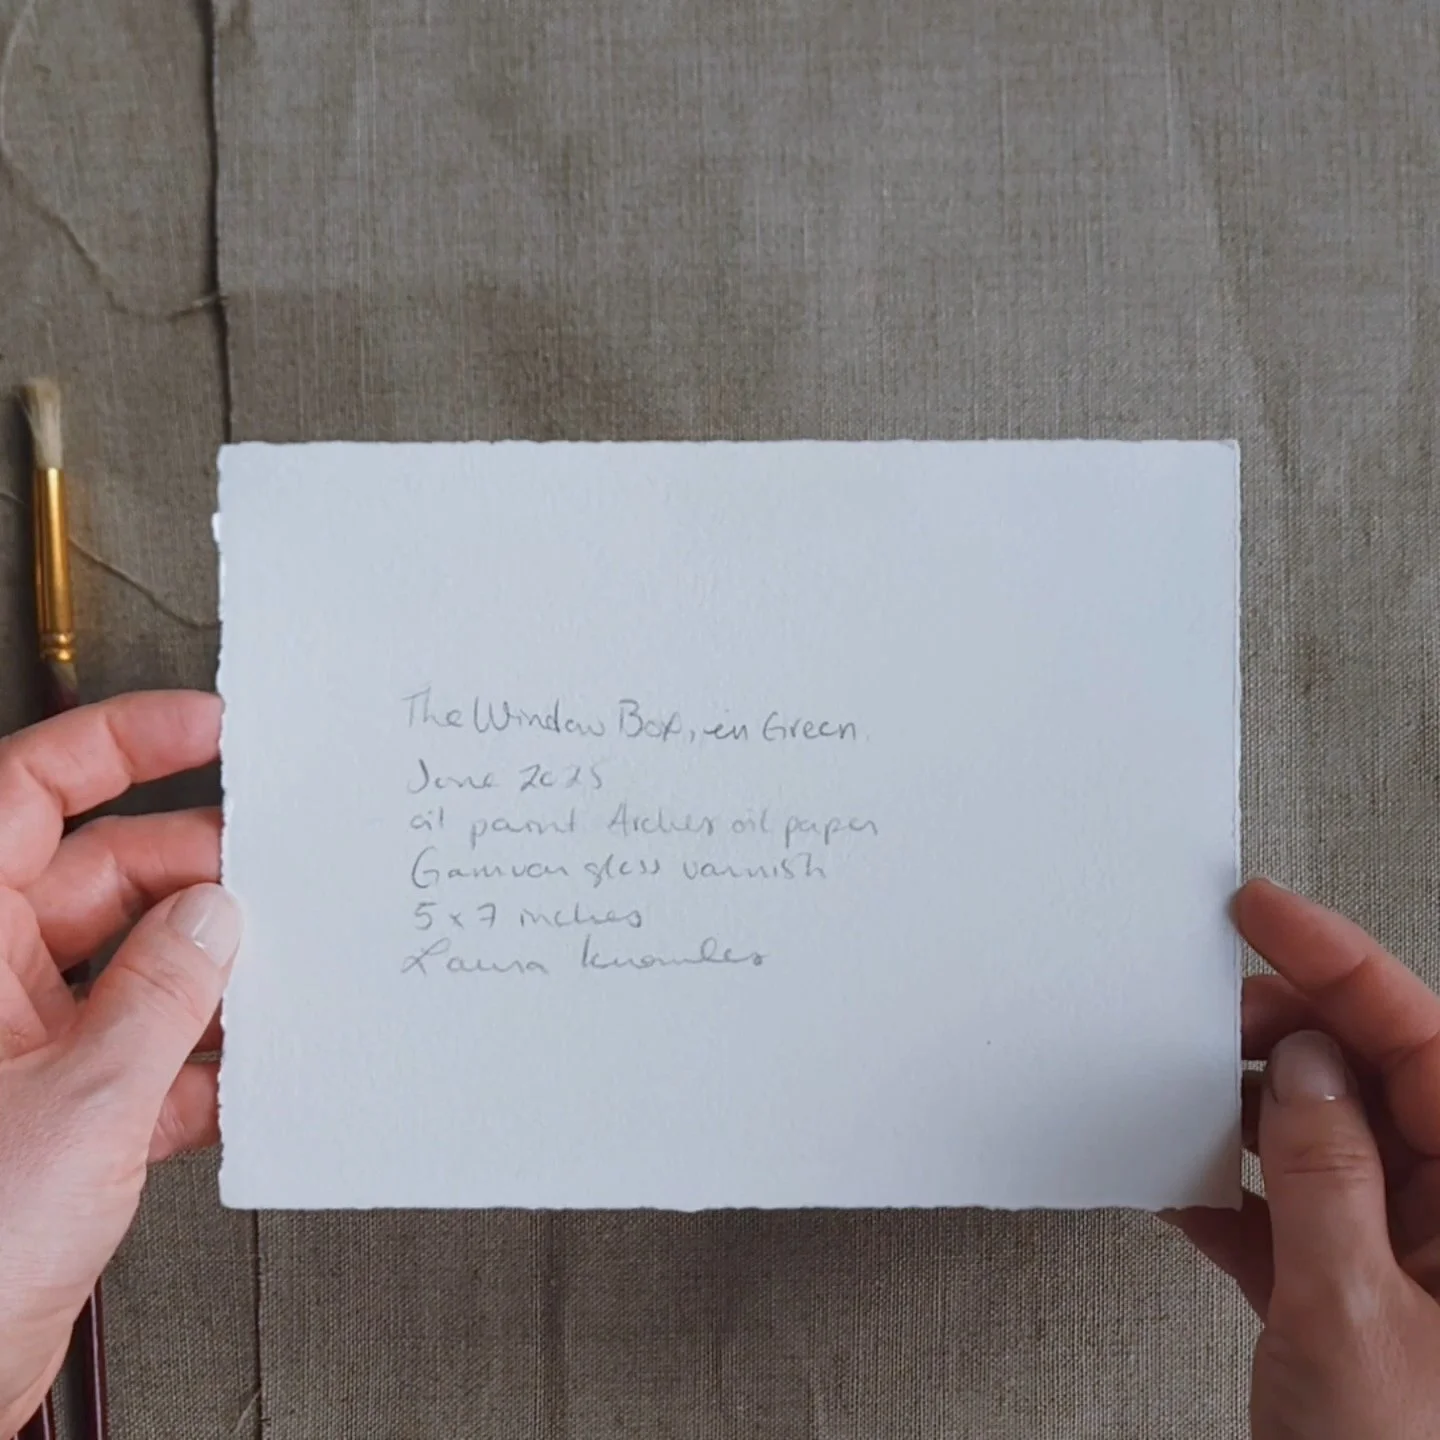 The Window Box, in Green.
June 2025
oil paint Arches oil paper
Gamvar gloss varnish
5 x 7 inches
Laura Knowles